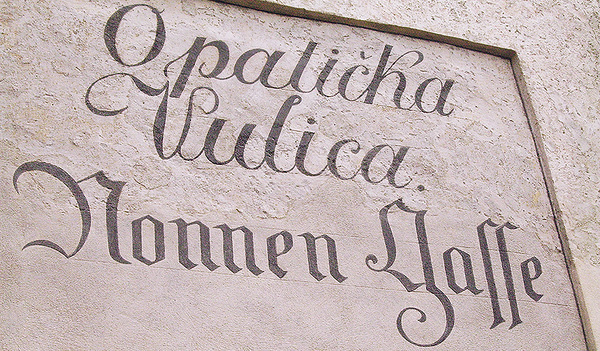 Opatička
Vulica.
Nonnen Gasse